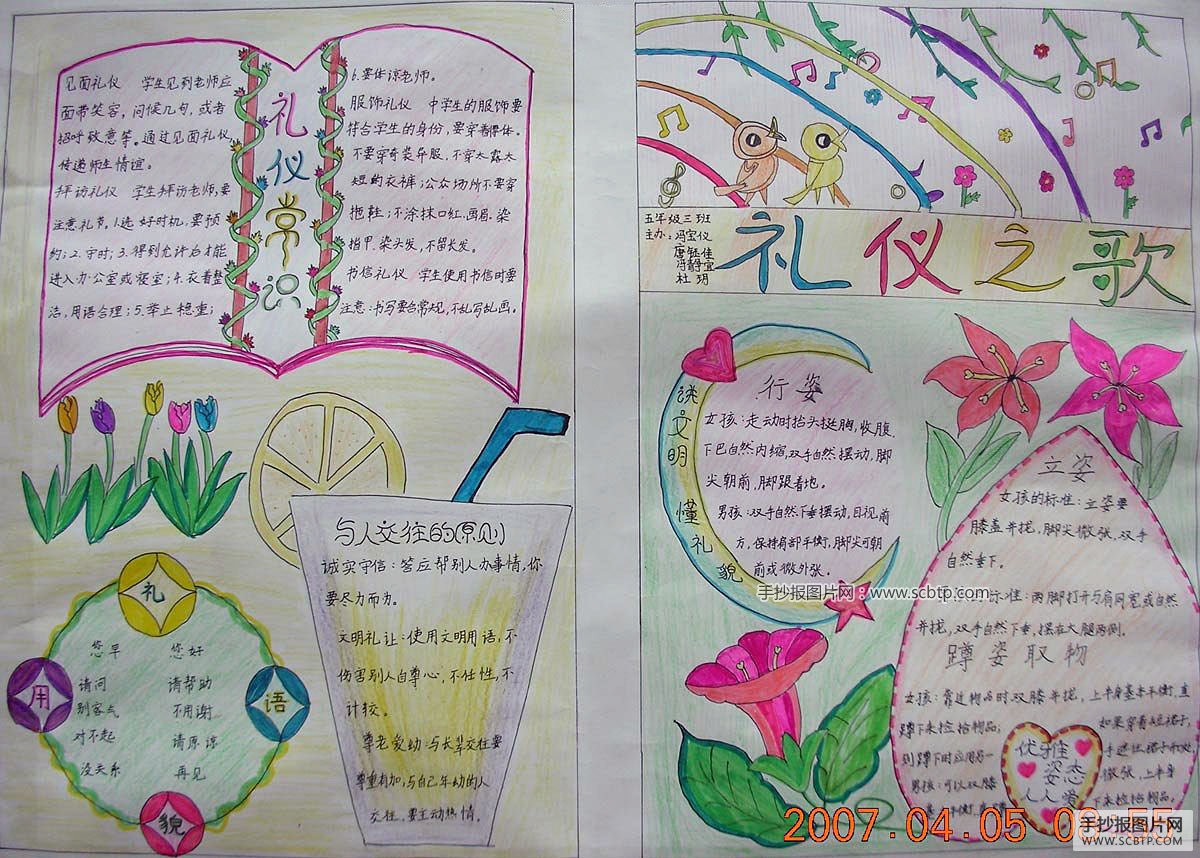 见面礼仪 学生见到老师应
面带笑容，问候几句，或者
招呼致意等。通过见面礼仪，
传递师生情谊。
拜访礼仪 学生拜访老师，要
注意礼节。1.选好时机，要预
约；2.守时；3.得到允许后才能
进入办公室或寝室；4.衣着整
洁，用语合理；5.举止稳重；
礼仪常识
6.要体谅老师。
服饰礼仪 中学生的服饰要
符合学生的身份，要穿着得体。
不要穿奇装异服，不穿太露太
短的衣裤；公众场所不要穿
拖鞋；不涂抹口红、画眉、染
指甲、染头发，不留长发。
书信礼仪 学生使用书信时要
注意：书写要合常规，不乱写乱画。
礼
用
语
貌
您早 您好
请问 请帮助
别客气 不用谢
对不起 请原谅
没关系 再见
与人交往的原则
诚实守信：答应帮别人办事情，你
要尽力而为。
文明礼让：使用文明用语，不
伤害别人自尊心，不任性，不
计较。
尊老爱幼：与长辈交往要
尊重有加，与自己年幼的人
交往，要主动热情。
五年级三班
主办：冯宝仪
冯静宜
杜玥
礼仪之歌
谈文明 懂礼貌
行姿
女孩：走动时抬头挺胸，收腹，
下巴自然内缩，双手自然摆动，脚
尖朝前，脚跟着地。
男孩：双手自然下垂摆动，目视前
方，保持肩部平衡，脚尖可朝
前或微外张。
手抄报图片网：www.scbtp.com
立姿
女孩的标准：立姿要
膝盖并拢，脚尖微张，双手
自然垂下。
标准：两脚打开与肩同宽或自然
并拢，双手自然下垂，摆在大腿两侧。
蹲姿取物
女孩：靠近物品时双膝并拢，上半身基本平衡，直
蹲下来捡拾物品；
如果穿着短裙子，
别蹲下时应用另一
手遮住裙子开口，
男孩：可以双膝
微张，上半身
下来捡拾物品。
优雅
姿态
人人爱
2007.04.05
手抄报图片网
WWW.SCBTP.COM